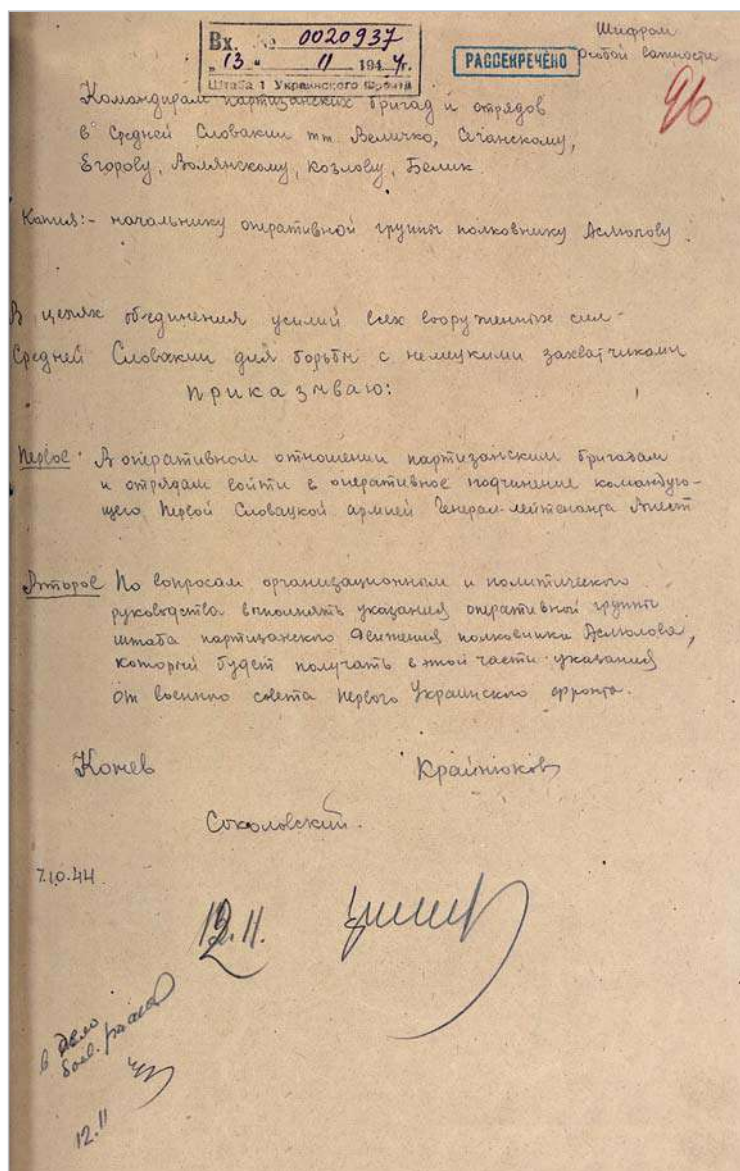 Вх. № 0020937
"13" 11 1944г.
Штаба 1 Украинского Фронта
РАССЕКРЕЧЕНО
Шифром
Особой важности
96
Командирам партизанских бригад и отрядов
в Средней Словакии тт. Величко,
Егорову, Волянскому, Козлову, Белик.
Копия:- начальнику оперативной группы полковнику Асмолову.
В целях объединения усилий всех вооруженных сил
Средней Словакии для борьбы с немецкими захватчиками
приказываю:
Первое. В оперативном отношении партизанским бригадам
и отрядам войти в оперативное подчинение командую-
щего Первой Словацкой армией Генерал-лейтенанта Виест
Второе По вопросам организационным и политического
руководства выполнять указания оперативной группы
штаба партизанского движения полковника Асмолова,
который будет получать в этой части указания
от военного совета Первого Украинского фронта.
Конев Крайнюков
Соколовский.
7.10.44
12.11.
в дело
12.11